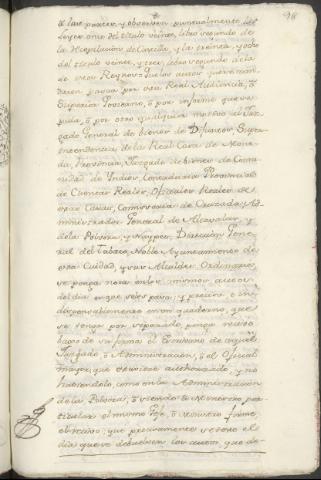 98
de las partes, y observen puntualmente las
leyes once del titulo veinte, libro segundo de
la Recopilacion de Castilla, y la treinta, y ocho
del titulo veinte, y tres, libro segundo de la
de estos Reynos: Que los autos que se man-
daren pasar por esta Real Audiencia, ò
Superior Govierno, ò por informe que se
pida, ò por otro qualquier motivo al Juz-
gado General de bienes de Difuntos, Supe-
rintendencia de la Real Casa de Mone-
da, Provincia, Juzgado de bienes de Comu-
nidad de Yndios, Contaduria Provincial
de Cuentas Reales, Oficiales Reales de
estas Caxas, Comisaria de Cruzada, Ad-
ministrador General de Alcavalas, y
de la Polvora, y Naypes, Direccion Gene-
ral del Tabaco, Noble Ayuntamiento de
esta Ciudad, y sus Alcaldes Ordinarios,
se ponga nota en los mismos autos
del dia en que se les pasa, y precisa è in-
dispensablemente en un quaderno, que
se tenga por separado, ponga recivo
baxo de su firma el Escribano de aquel
Juzgado, ò Administracion, ò el Oficial
mayor que estuviere authorizado, y no
habiendolo, como en la Administracion
de la Polvora, ò siendo el Ministro par-
ticular el mismo Gefe, ò Ministro firme,
el recivo; que precisamente se note el
dia que se debuelven los autos, que de-